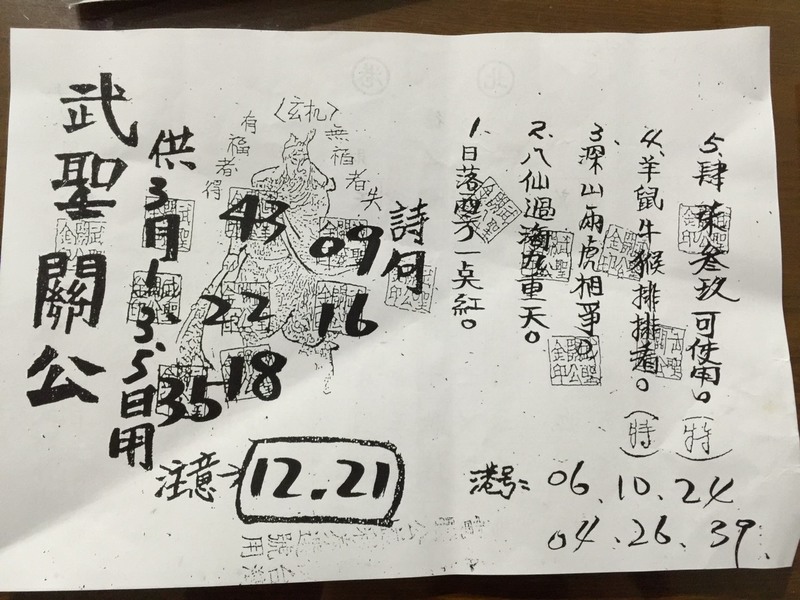 武聖關公
供3月1.3.5日用
〈玄机〉
有福者得
無福者失
43
09
22
16
35
18
注意→
12.21
詩句
1.日落西方一点紅。
2.八仙過海九重天。
3.深山兩虎相爭。
4.羊鼠牛猴排排看。(特)
5.肆柒叁玖可使用。(特)
港号: 06.10.24
04.26.39.